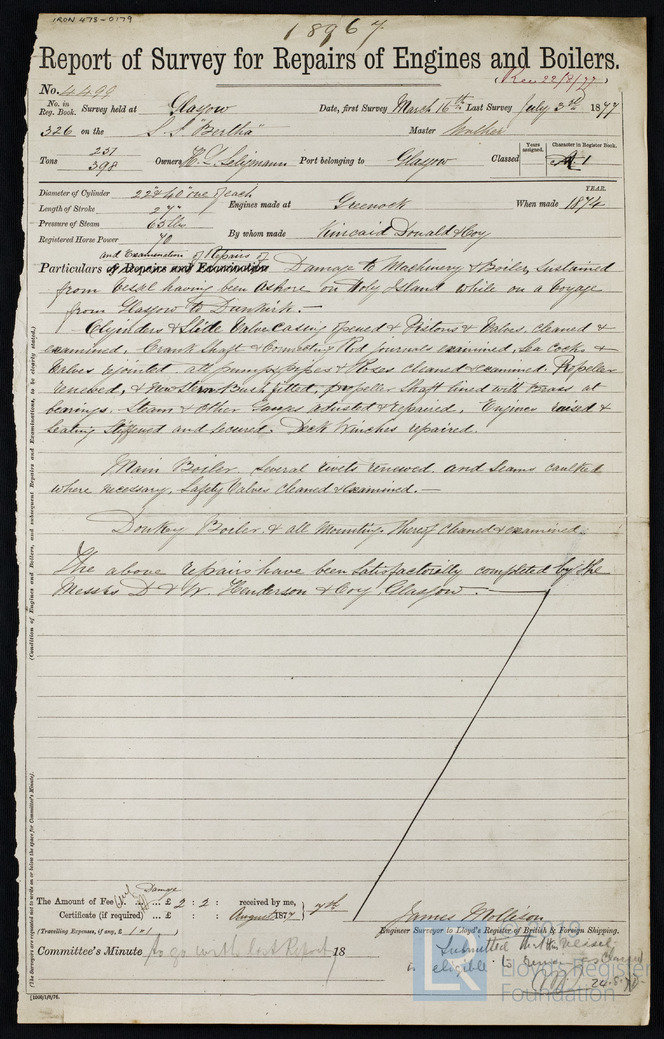 IRON 473-0179
18967
Report of Survey for Repairs of Engines and Boilers.
(Rec 22/8/77)
No. 4499
No. in Reg. Book. Survey held at Glasgow Date, first Survey March 16th Last Survey July 3rd 1877
326 on the S.S. "Bertha" Master
Tons 257 398 Owners H. L. Seligmann Port belonging to Glasgow Classed Years assigned. Character in Register Book. A 1
Diameter of Cylinder 22" & 40" one of each
Length of Stroke 27" Engines made at Greenock When made YEAR. 1874
Pressure of Steam 65 lbs
Registered Horse Power 70 By whom made Kincaid Donald & Coy
and Examination of Repairs of
Particulars of Repairs and Examination Damage to Machinery & Boiler, sustained
from vessel having been ashore on Holy Island while on a voyage
from Glasgow to Dunkirk.—
Clyinders & Slide Valve casing opened & Pistons & Valves, cleaned &
examined, Crank Shaft & Connecting Rod journals examined, Sea Cocks &
Valves rejointed all pumps pipes & Roses cleaned & examined. Propeller
renewed, & New Stern Bush fitted, propeller shaft lined with Brass at
bearings. Steam & other Gauges adjusted & repaired, Engines raised &
Seating Stiffened and secured. Deck Winches repaired.
Main Boiler. Several rivets renewed, and seams caulked
where necessary, Safety Valves cleaned & examined.—
Donkey Boiler. & all Mountings thereof cleaned & examined.
The above repairs have been satisfactorily completed by the
Messrs D & W. Henderson & Coy Glasgow.
(Condition of Engines and Boilers, and subsequent Repairs and Examinations, to be clearly stated.)
(The Surveyors are requested not to write on or below the space for Committee's Minute).
Damage
The Amount of Fee ... £ 2 : 2 : received by me,
Certificate (if required) ... £ : : August 1877 7th
(Travelling Expenses, if any, £ 1-1 )
James Mollison
Engineer Surveyor to Lloyd's Register of British & Foreign Shipping.
Committee's Minute to go with last Report 18
Submitted that this vessel
is eligible to remain as classed
24.8.77
LR
2019
Lloyd's Register
Foundation